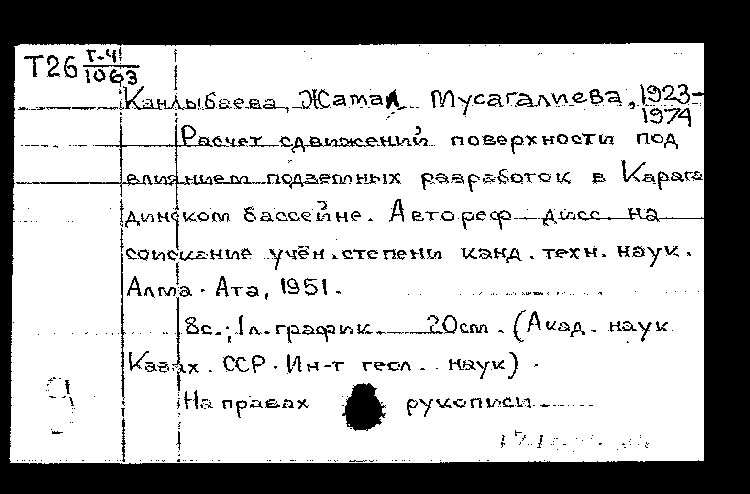 Т26 Г-4/1063
Канлыбаева, Жамал Мусагалиева, 1923-1974
Расчет сдвижений поверхности под
влиянием подземных разработок в Карага
динском бассейне. Автореф дисс. на
соискание учён. степени канд. техн. наук.
Алма-Ата, 1951.
8с.; 1л. график. 20см. (Акад. наук
Казах. ССР. Ин-т геол. наук).
На правах рукописи